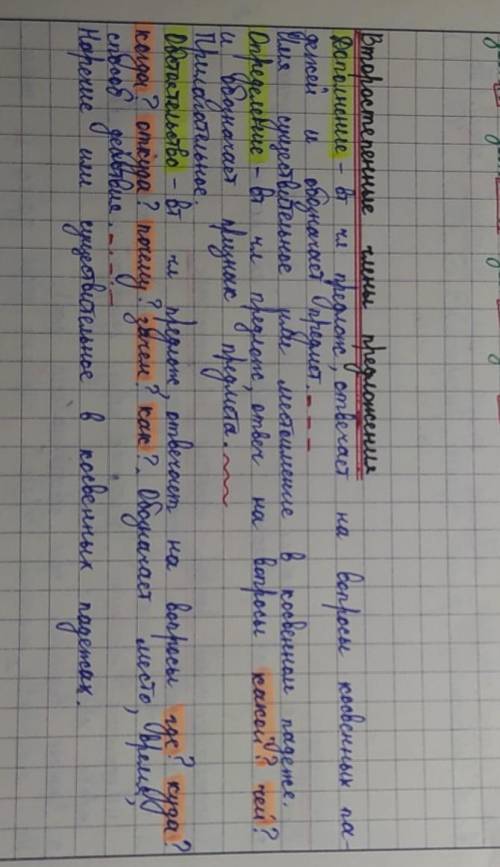 Второстепенные члены предложения
Дополнение - вт чл предлож, отвечает на вопросы косвенных па-
дежей и обозначает предмет.
Имя существительное или местоимение в косвенном падеже.
Определение - вт чл предлож, отвеч на вопросы какой? чей?
и обозначает признак предмета.
Прилагательное.
Обстоятельство - вт чл предлож, отвечает на вопросы где? куда?
когда? откуда? почему? зачем? как? Обозначает место, время,
способ действия.
Наречие или существительное в косвенных падежах.